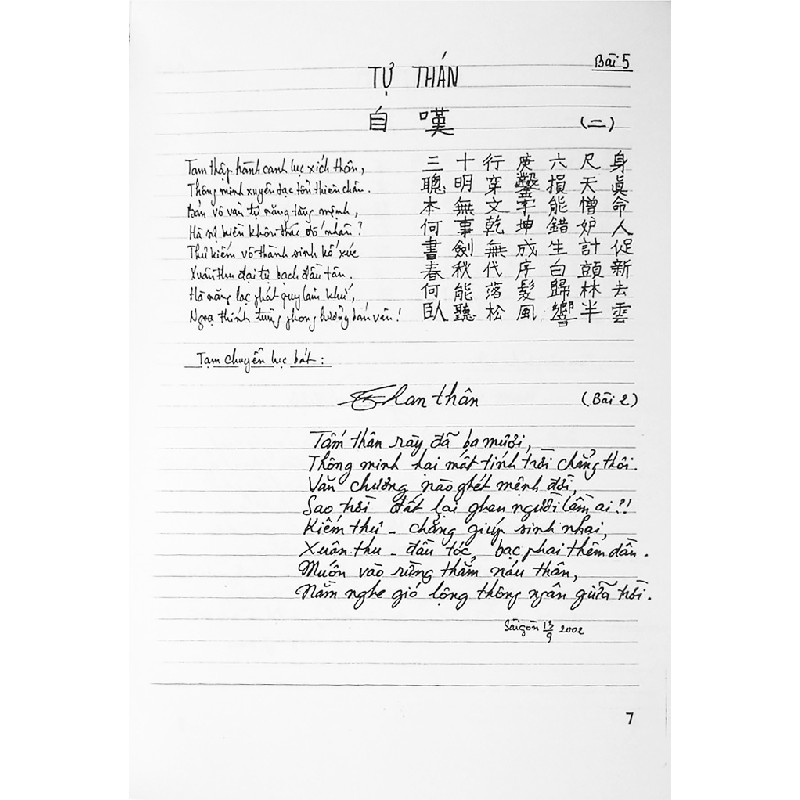 Bài 5
TỰ THÁN
自 嘆 (二)
Tam thập hành canh lục xích thân,
Thông minh xuyên tạc tổn thiên chân.
Bản vô văn tự năng tăng mệnh,
Hà sự kiền khôn thác đố nhân?
Thư kiếm vô thành sinh kế xúc
Xuân thu đại tự bạch đầu tân.
Hà năng lạc phát quy lâm khứ,
Ngọa thính tùng phong hưởng bán vân!
三 十 行 庚 六 尺 身
聰 明 穿 鑿 損 天 眞
本 無 文 字 能 憎 命
何 事 乾 坤 錯 妒 人
書 劍 無 成 生 計 促
春 秋 代 序 白 頭 新
何 能 落 髮 歸 林 去
臥 聽 松 風 響 半 雲
Tạm chuyển lục bát:
Than thân (Bài 2)
Tấm thân rày đã ba mươi,
Thông minh hại mất tính trời chẳng thôi.
Văn chương nào ghét mệnh đời,
Sao trời đất lại ghen người lầm ai?!
Kiếm thư - chẳng giúp sinh nhai,
Xuân thu - đầu tóc, bạc phai thêm dần.
Muốn vào rừng thẳm náu thân,
Nằm nghe gió lộng thông ngân giữa trời.
Sàigòn 13/9 2002
7